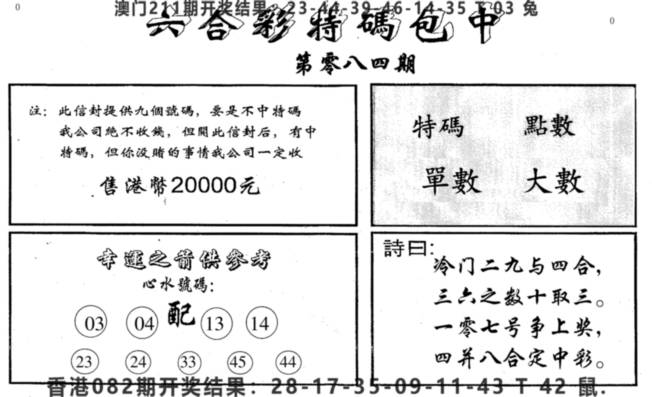 澳门211期开奖结果：23-44-39-46-14-35 T 03 兔
六合彩特碼包中
第零八四期
注：此信封提供九個號碼，要是不中特碼
我公司絶不收錢，但開此信封后，有中
特碼，但你没賭的事情我公司一定收
售港幣20000元
特碼 點數
單數 大數
幸運之箭供參考
心水號碼：
03 04 配 13 14
23 24 33 45 44
詩曰：
冷门二九与四合，
三六之数十取三。
一零七号争上奖，
四并八合定中彩。
香港082期开奖结果：28-17-35-09-11-43 T 42 鼠.
0
0